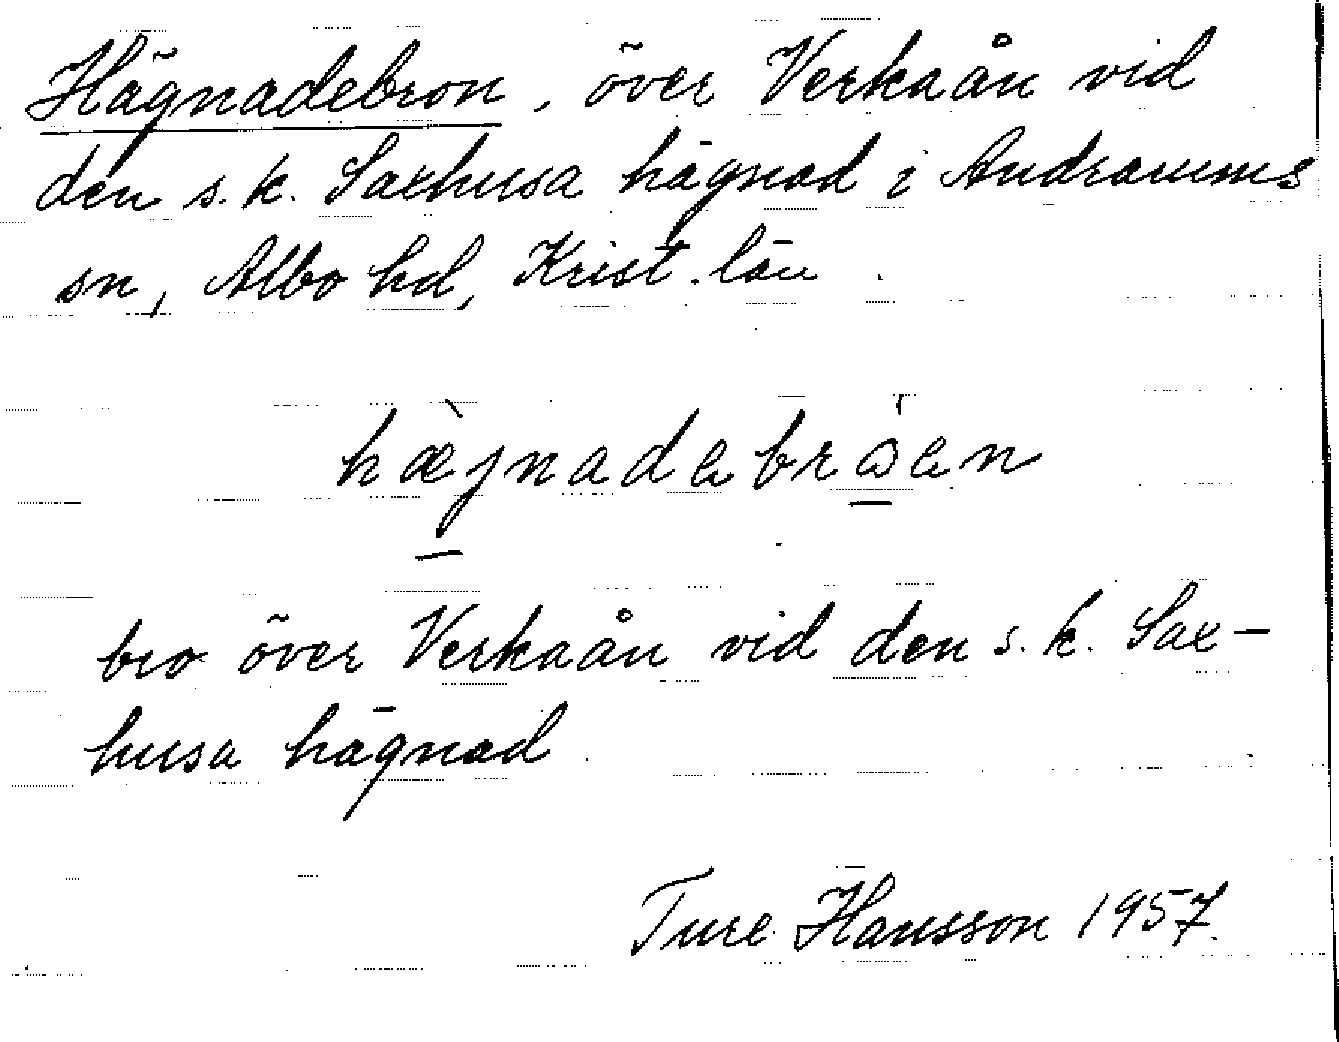 Hägnadebron, över Verkaån vid
den s.k. Saxhusa hägnad i Andrarums
sn, Albo hd, Krist. län.
hæ̀jnadebråen
bro över Verkaån vid den s.k. Sax-
husa hägnad
Ture Hansson 1957.